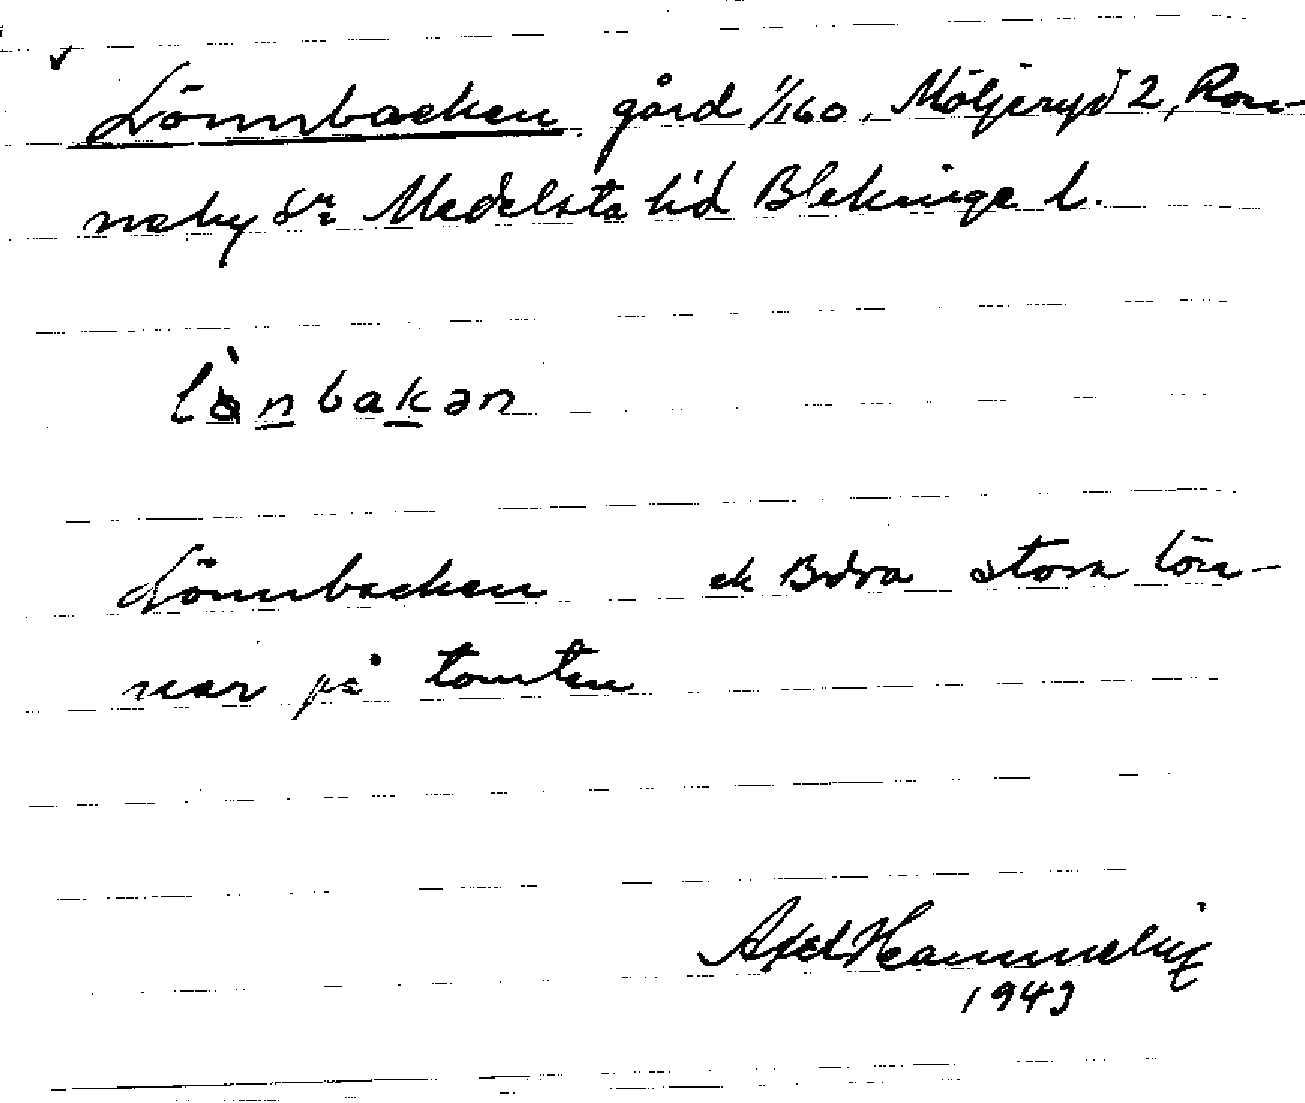 Lönnbacken gård 1/160, Möljeryd 2, Ron-
neby sn Medelsta hd Blekinge l.
lönbakən
Lönnbacken ek Bvra stora lön-
nar på tomten
Axel Hammelin
1943